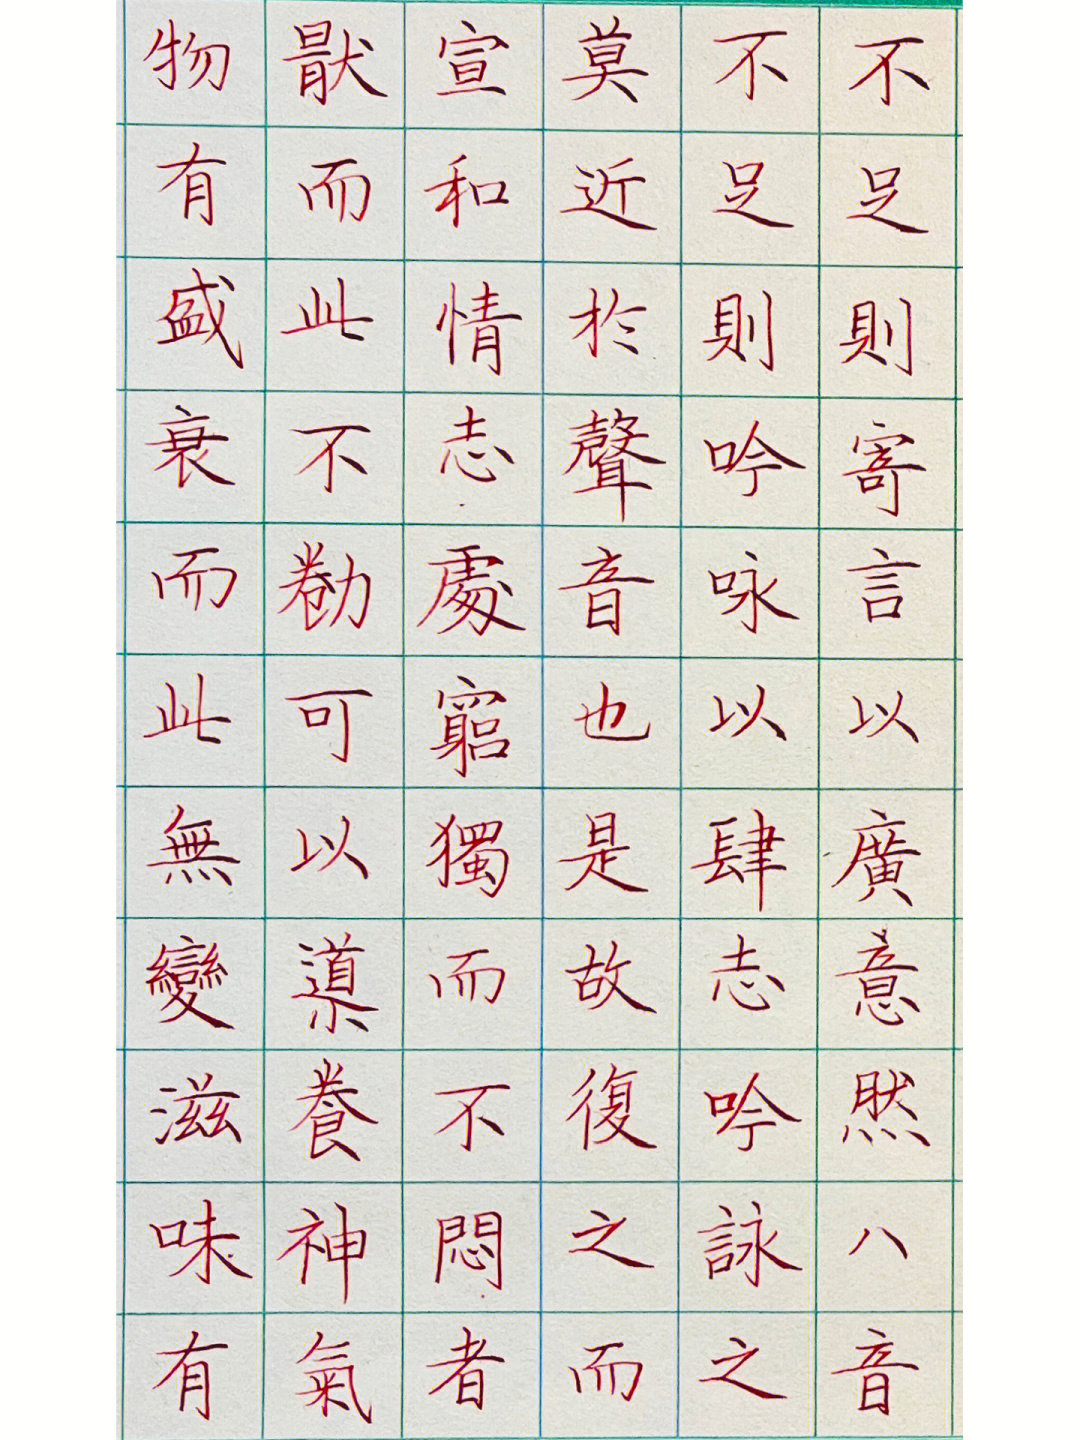 物有盛衰而此無變滋味有
猒而此不勌可以導養神氣
宣和情志處竆獨而不悶者
莫近扵聲音也是故復之而
不足則吟咏以肆志吟詠之
不足則寄言以廣意然八音